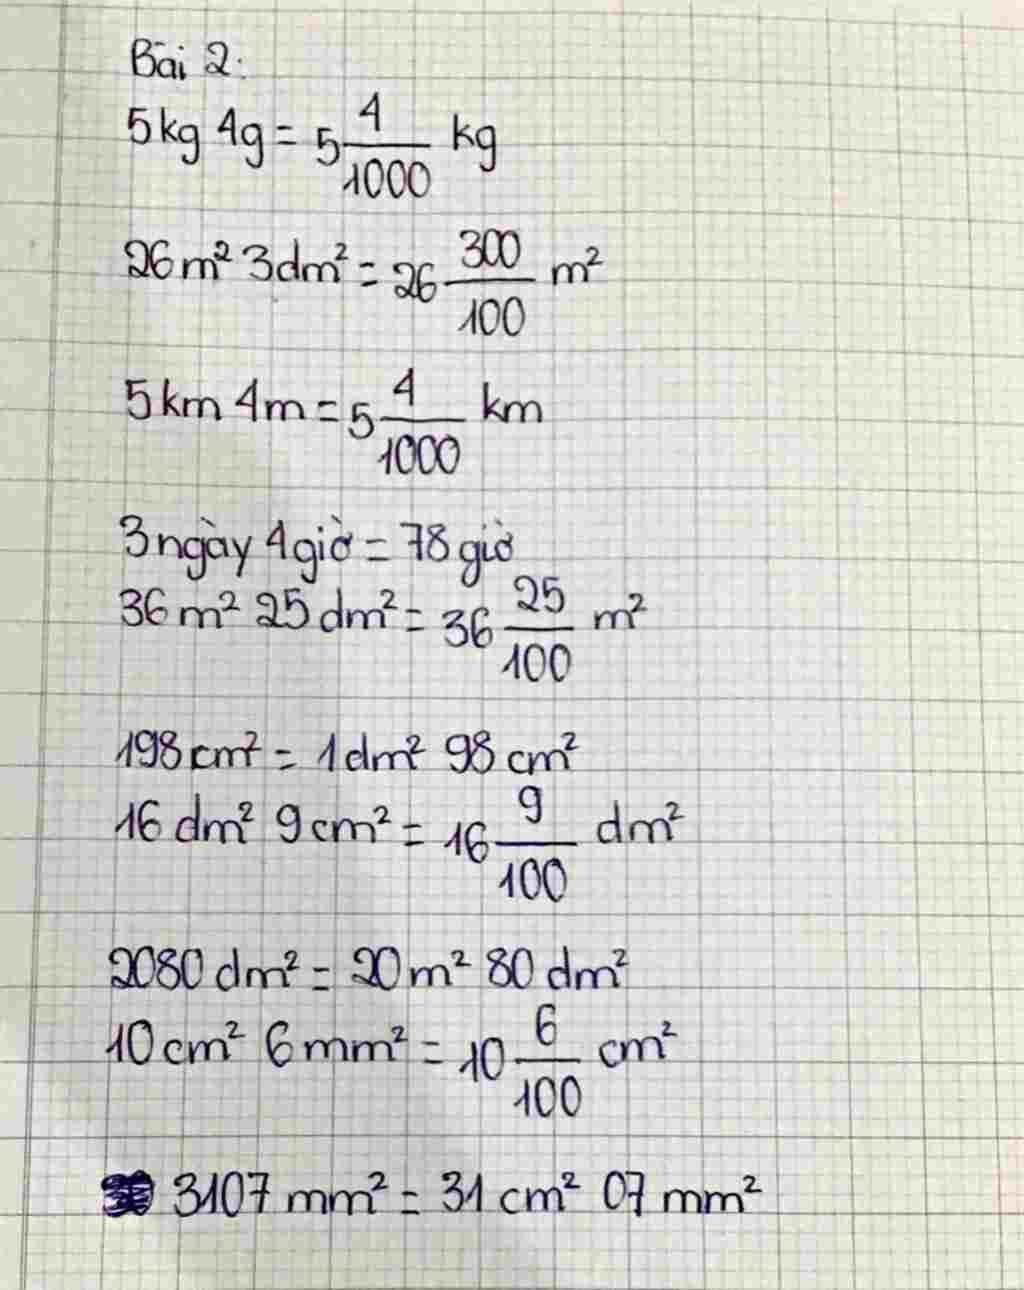 Bài 2:
5kg 4g = 5 4/1000 kg
26 m² 3dm² = 26 300/100 m²
5km 4m = 5 4/1000 km
3 ngày 4 giờ = 78 giờ
36 m² 25 dm² = 36 25/100 m²
198 cm² = 1 dm² 98 cm²
16 dm² 9 cm² = 16 9/100 dm²
2080 dm² = 20 m² 80 dm²
10 cm² 6 mm² = 10 6/100 cm²
3107 mm² = 31 cm² 07 mm²